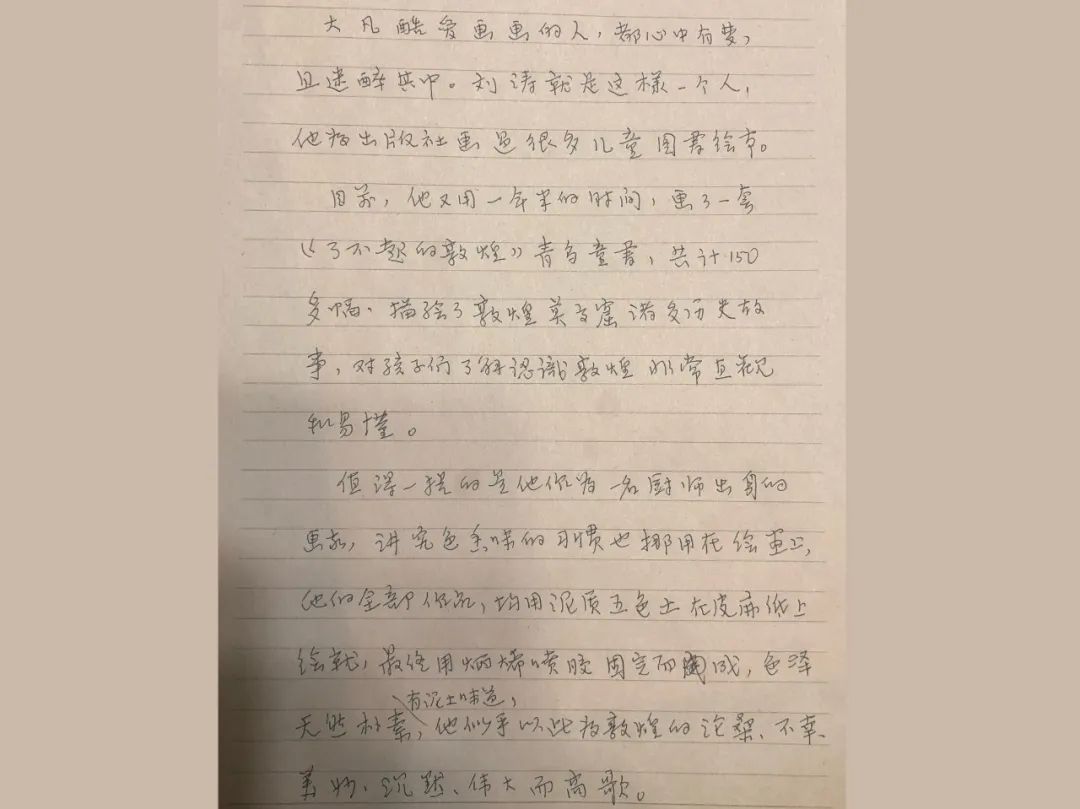 大凡酷爱画画的人，都心中有梦，
且迷醉其中。刘涛就是这样一个人，
他为出版社画过很多儿童图书绘本。
目前，他又用一年半的时间，画了一套
《了不起的敦煌》青鸟童书，共计150
多幅、描绘了敦煌莫高窟诸多历史故
事，对孩子们了解认识敦煌非常直观
和易懂。
值得一提的是他作为一名厨师出身的
画家，讲究色香味的习惯也挪用在绘画上，
他的全部作品，均用泥质五色土在皮麻纸上
绘就，最终用烯喷胶固定而成，色泽
有泥土味道，
天然朴素，他似乎以此为敦煌的沧桑、不幸、
美妙、沉默、伟大而高歌。